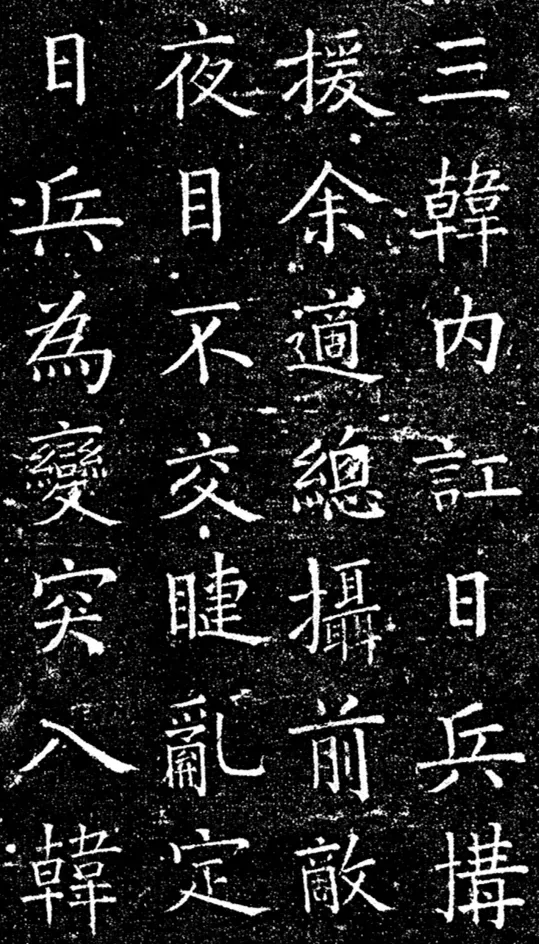 三韓内訌日兵搆
援余適總攝前敵
夜目不交睫亂定
日兵為變突入韓